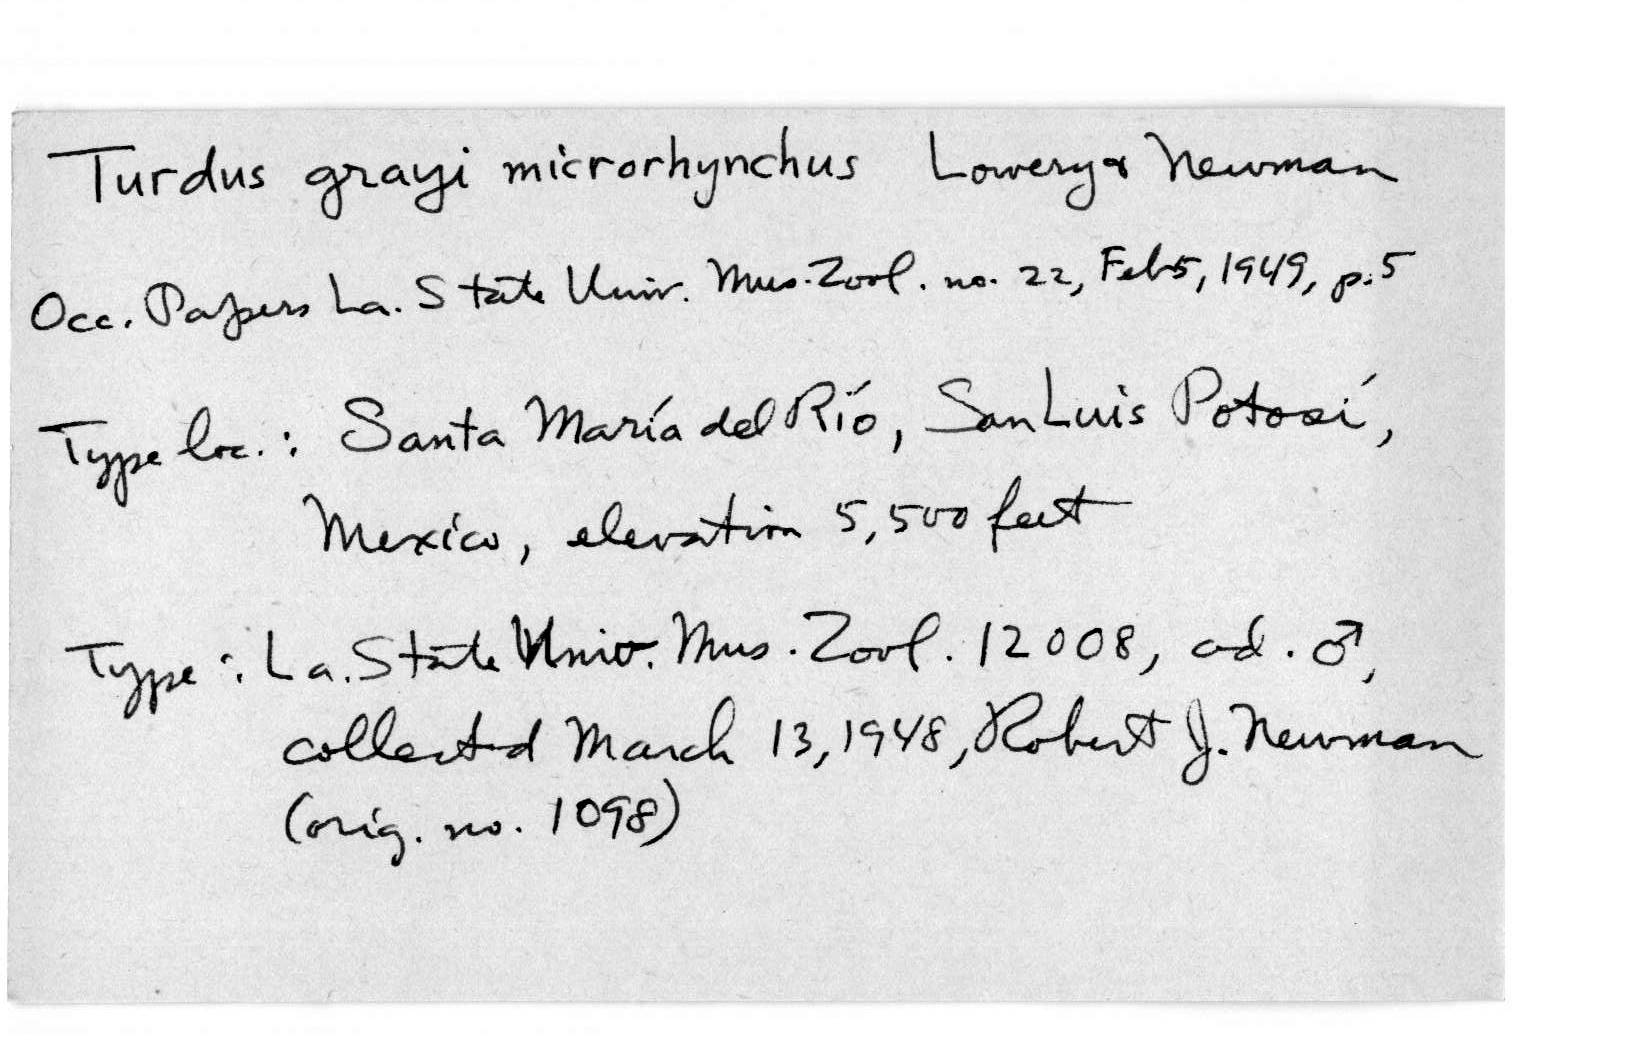 Turdus grayi microrhynchus Lowery & Newman
Occ. Papers La. State Univ. Mus. Zool. no. 22, Feb 5, 1949, p. 5
Type loc. : Santa María del Río, San Luis Potosí,
Mexico, elevation 5,500 feet
Type : La. State Univ. Mus. Zool. 12008, ad. ♂,
collected March 13, 1948, Robert J. Newman
(orig. no. 1098)